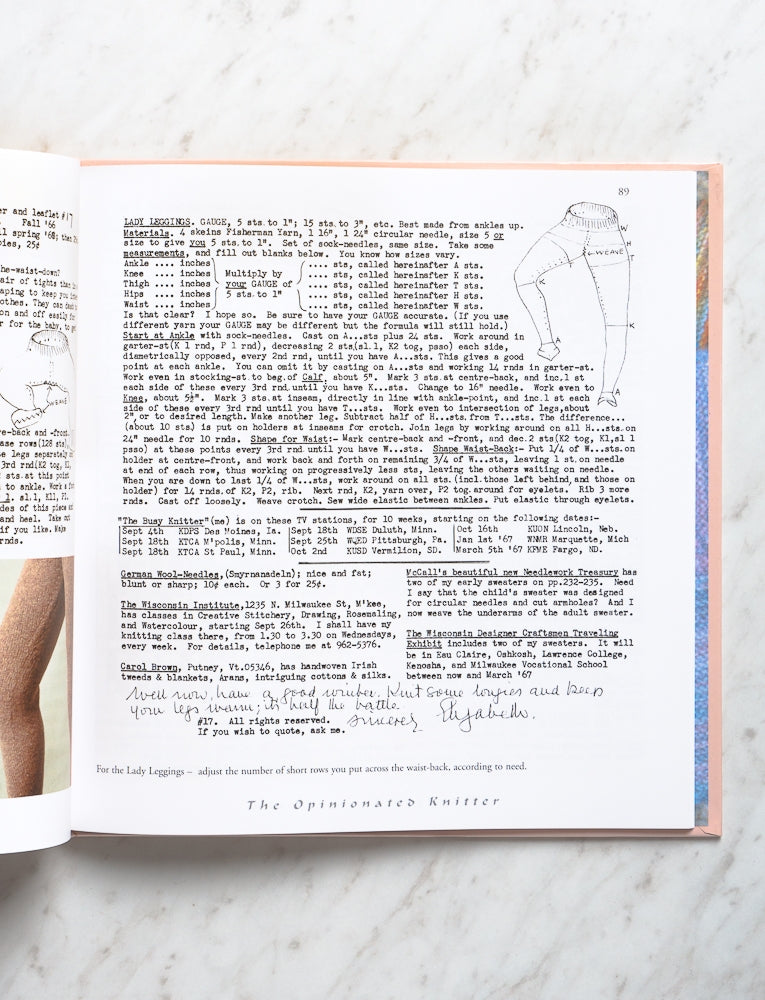 er and leaflet #17
Fall '66
ll spring '68; then 2
pies, 25¢
he-waist-down?
air of tights than
aping to keep you
othes. They can
on and off easily
r for the baby, to
WEAVE
re-back and -front.
ase rows(128 sts),
e legs separately
3rd rnd(K2 tog, K1,
sts. at this point
to ankle. Work a
1. sl.1, K11, P1.
des of this piece
and heel. Take out
if you like. Make
rnds.
89
LADY LEGGINGS. GAUGE, 5 sts. to 1"; 15 sts. to 3", etc. Best made from ankles up.
Materials. 4 skeins Fisherman Yarn, 1 16", 1 24" circular needle, size 5 or
size to give you 5 sts. to 1". Set of sock-needles, same size. Take some
measurements, and fill out blanks below. You know how sizes vary.
Ankle .... inches .... sts, called hereinafter A sts.
Knee .... inches Multiply by .... sts, called hereinafter K sts.
Thigh .... inches your GAUGE of .... sts, called hereinafter T sts.
Hips .... inches 5 sts. to 1" .... sts, called hereinafter H sts.
Waist .... inches .... sts, called hereinafter W sts.
Is that clear? I hope so. Be sure to have your GAUGE accurate. (If you use
different yarn your GAUGE may be different but the formula will still hold.)
Start at Ankle with sock-needles. Cast on A...sts plus 24 sts. Work around in
garter-st(K 1 rnd, P 1 rnd), decreasing 2 sts(sl.1, K2 tog, psso) each side,
diametrically opposed, every 2nd rnd, until you have A...sts. This gives a good
point at each ankle. You can omit it by casting on A...sts and working 14 rnds in garter-st.
Work even in stocking-st. to beg. of Calf, about 5". Mark 3 sts. at centre-back, and inc.1 st
each side of these every 3rd rnd. until you have K...sts. Change to 16" needle. Work even to
Knee, about 5½". Mark 3 sts. at inseam, directly in line with ankle-point, and inc.1 st each
side of these every 3rd rnd until you have T...sts. Work even to intersection of legs, about
2", or to desired length. Make another leg. Subtract half of H...sts. from T...sts. The difference...
(about 10 sts.) is put on holders at inseams for crotch. Join legs by working around on all H...sts. on
24" needle for 10 rnds. Shape for Waist:- Mark centre-back and -front, and dec. 2 sts(K2 tog, K1, sl 1
psso) at these points every 3rd rnd. until you have W...sts. Shape Waist-Back:- Put 1/4 of W...sts. on
holder at centre-front, and work back and forth on remaining 3/4 of W...sts, leaving 1 st. on needle
at end of each row, thus working on progressively less sts, leaving the others waiting on needle.
When you are down to last 1/4 of W...sts, work around on all sts. (incl. those left behind, and those on
holder) for 14 rnds. of K2, P2, rib. Next rnd, K2, yarn over, P2 tog. around for eyelets. Rib 3 more
rnds. Cast off loosely. Weave crotch. Sew wide elastic between ankles. Put elastic through eyelets.
W
H
T
WEAVE
T
K
K
A
A
"The Busy Knitter"(me) is on these TV stations, for 10 weeks, starting on the following dates:-
Sept 4th KDPS Des Moines, Ia. Sept 18th WDSE Duluth, Minn. Oct 16th KUON Lincoln, Neb.
Sept 18th KTCA M'polis, Minn. Sept 25th WQED Pittsburgh, Pa. Jan 1st '67 WNMR Marquette, Mich
Sept 18th KTCA St Paul, Minn. Oct 2nd KUSD Vermilion, SD. March 5th '67 KFME Fargo, ND.
German Wool-Needles,(Smyrnanadeln); nice and fat;
blunt or sharp; 10¢ each. Or 3 for 25¢.
The Wisconsin Institute,1235 N. Milwaukee St, M'kee,
has classes in Creative Stitchery, Drawing, Rosemaling,
and Watercolour, starting Sept 26th. I shall have my
knitting class there, from 1.30 to 3.30 on Wednesdays,
every week. For details, telephone me at 962-5376.
Carol Brown, Putney, Vt.05346, has handwoven Irish
tweeds & blankets, Arans, intriguing cottons & silks.
McCall's beautiful new Needlework Treasury has
two of my early sweaters on pp.232-235. Need
I say that the child's sweater was designed
for circular needles and cut armholes? And I
now weave the underarms of the adult sweater.
The Wisconsin Designer Craftsmen Traveling
Exhibit includes two of my sweaters. It will
be in Eau Claire, Oshkosh, Lawrence College,
Kenosha, and Milwaukee Vocational School
between now and March '67
Well now, have a good winter. Knit some longies and keep
your legs warm; it's half the battle.
sincerely Elizabeth.
#17. All rights reserved.
If you wish to quote, ask me.
For the Lady Leggings – adjust the number of short rows you put across the waist-back, according to need.
The Opinionated Knitter